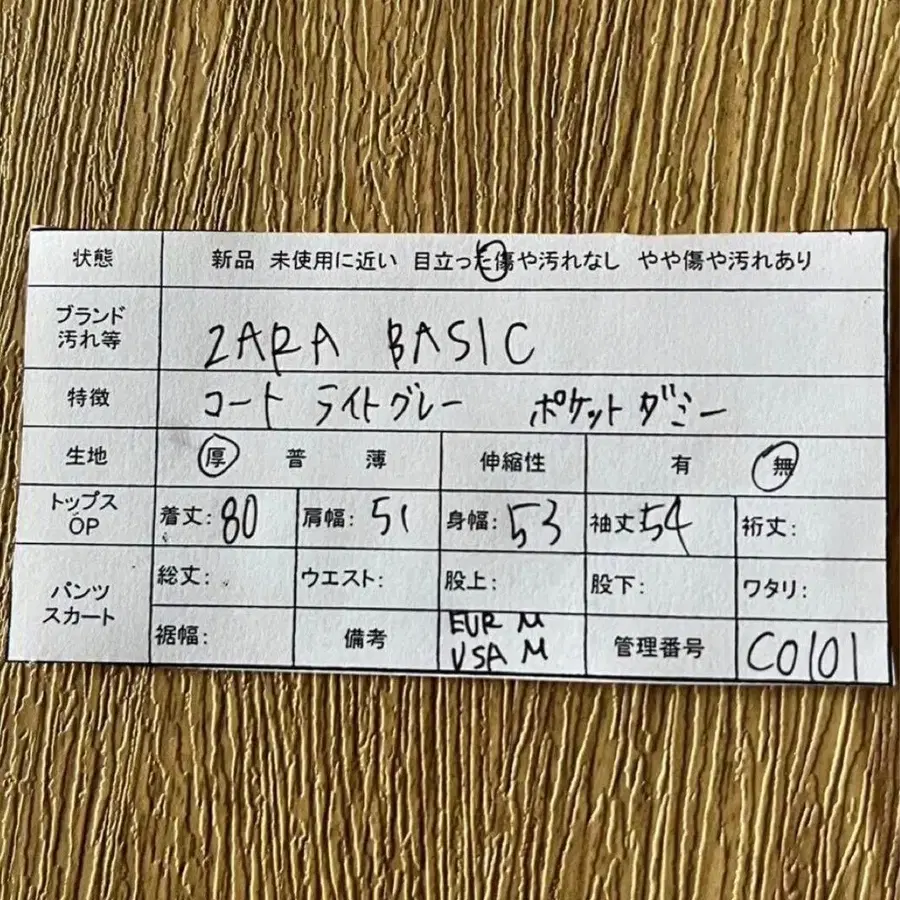 状態 新品 未使用に近い 目立った傷や汚れなし やや傷や汚れあり
ブランド
汚れ等
ZARA BASIC
特徴 コート ライトグレー ポケットダミー
生地 厚 普 薄 伸縮性 有 無
トップス
OP
着丈:80 肩幅:51 身幅:53 袖丈54 裄丈:
パンツ
スカート
総丈: ウエスト: 股上: 股下: ワタリ:
裾幅: 備考
EUR M
USA M
管理番号 C0101